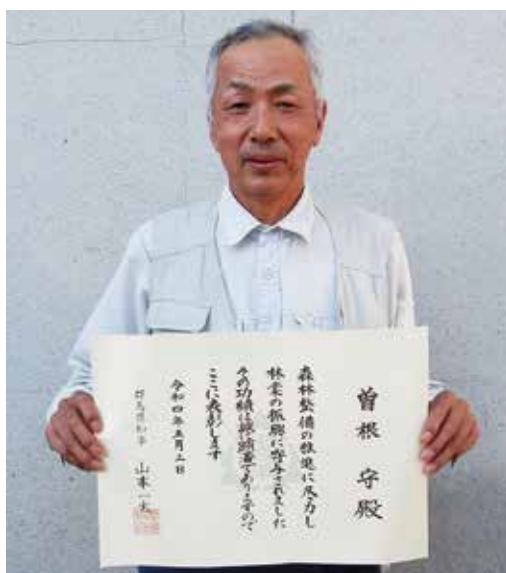 曽根 守殿
森林整備の推進に尽力し
林業の振興に寄与されました
その功績は誠に顕著でありますので
ここに表彰します
令和四年五月三日
群馬県知事 山本一太